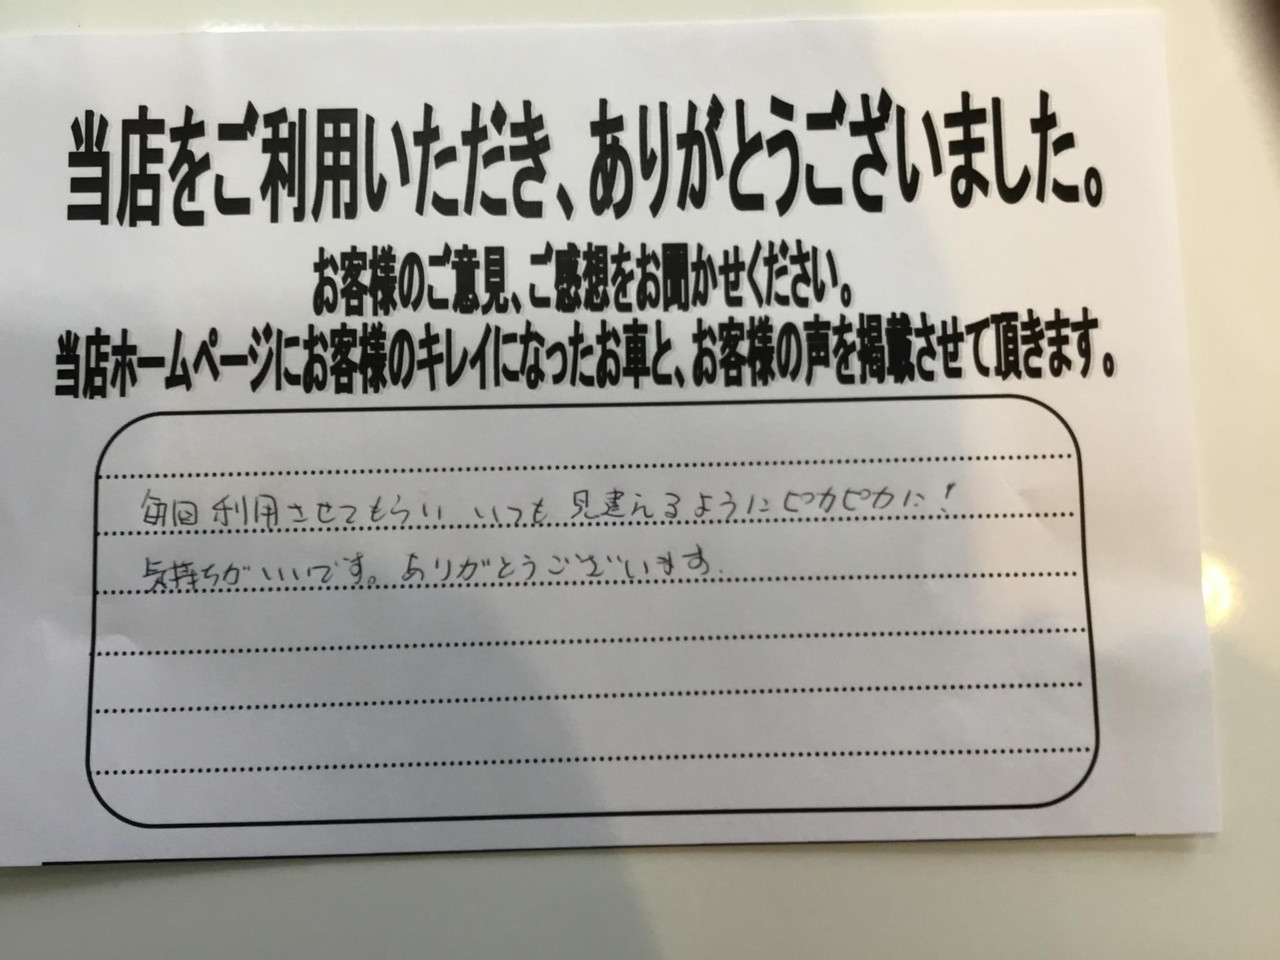 当店をご利用いただき、ありがとうございました。
お客様のご意見、ご感想をお聞かせください。
当店ホームページにお客様のキレイになったお車と、お客様の声を掲載させて頂きます。
毎回利用させてもらい いつも 見違えるようにピカピカに!
気持ちがいいです。ありがとうございます.